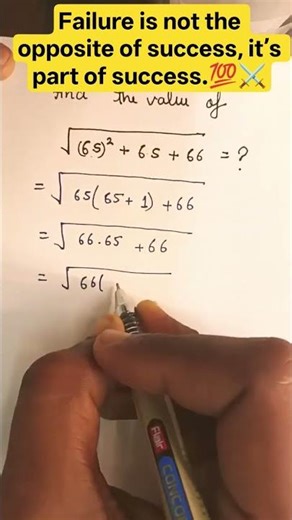 Failure is not the
opposite of success, it’s
part of success.💯⚔️
the value of
√(65)² + 65 + 66 = ?
= √65(65 + 1) + 66
= √66.65 + 66
= √66(
Flair